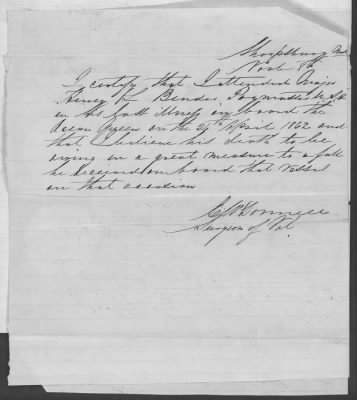 Sharpsburg Md
Novb 8th
I certify that I attended Major
Henry L Bender, Paymaster U.S.A
in his last illness on board the
Ocean Queen on the 29th April 1862 and
that I believe his death to be
owing in a great measure to a fall
he received on board that vessel
on that occasion
Surgeon of Vol.